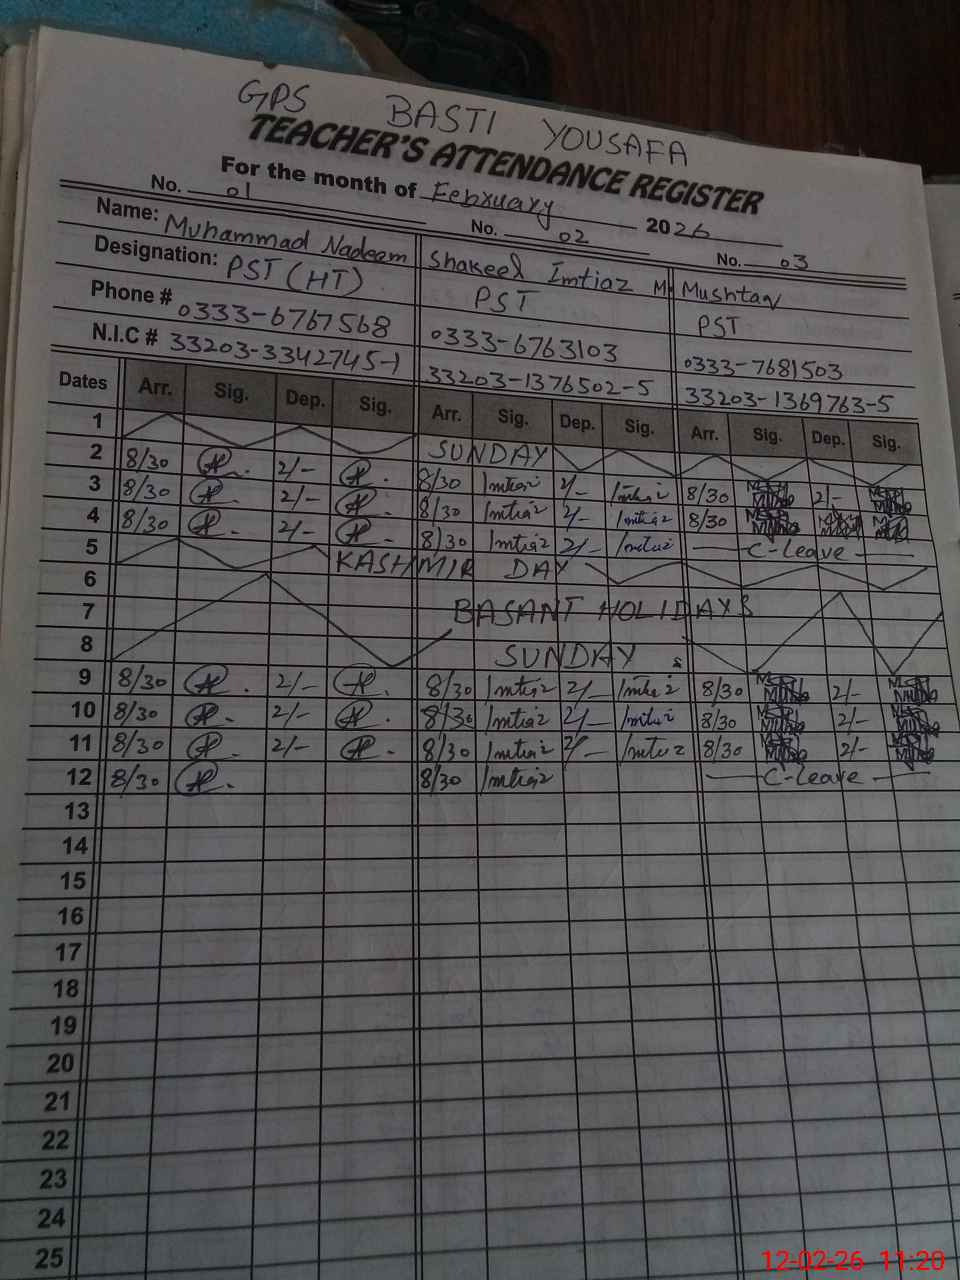 GPS BASTI YOUSAFA
TEACHER'S ATTENDANCE REGISTER
For the month of February 2026
No. 01 No. 02 No. 03
Name: Muhammad Nadeem Shakeel Imtiaz M Mushtaq
Designation: PST (HT) PST PST
Phone # 0333-6767568 0333-6763103 0333-7681503
N.I.C # 33203-3342745-1 33203-1376502-5 33203-1369763-5
Dates Arr. Sig. Dep. Sig. Arr. Sig. Dep. Sig. Arr. Sig. Dep. Sig.
1 SUNDAY
2 8/30 2/- 8/30 Imtiaz 2/- Imtiaz 8/30 2/-
3 8/30 2/- 8/30 Imtiaz 2/- Imtiaz 8/30
4 8/30 2/- 8/30 Imtiaz 2/- Imtiaz C-Leave
5 KASHMIR DAY
6
7 BASANT HOLIDAYS
8 SUNDAY
9 8/30 2/- 8/30 Imtiaz 2/- Imtiaz 8/30 2/-
10 8/30 2/- 8/30 Imtiaz 2/- Imtiaz 8/30 2/-
11 8/30 2/- 8/30 Imtiaz 2/- Imtiaz 8/30 2/-
12 8/30 8/30 Imtiaz C-Leave
13
14
15
16
17
18
19
20
21
22
23
24
25
12-02-26 11:20